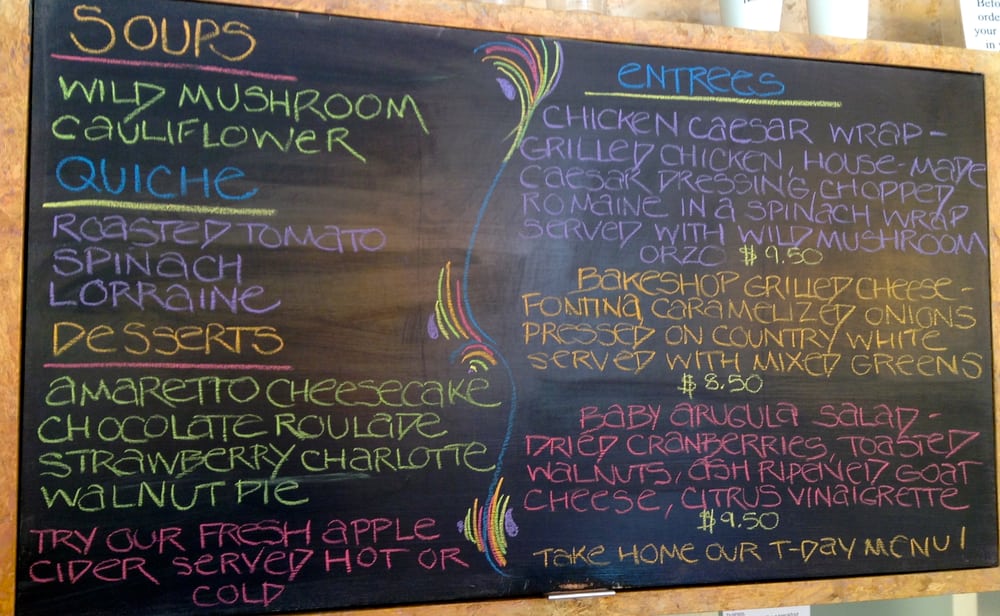 SOUPS
WILD MUSHROOM
CAULIFLOWER
QUICHE
ROASTED TOMATO
SPINACH
LORRAINE
DESSERTS
AMARETTO CHEESECAKE
CHOCOLATE ROULADE
STRAWBERRY CHARLOTTE
WALNUT PIE
TRY OUR FRESH APPLE
CIDER SERVED HOT OR
COLD
ENTREES
CHICKEN CAESAR WRAP-
GRILLED CHICKEN, HOUSE-MADE
CAESAR DRESSING, CHOPPED
ROMAINE IN A SPINACH WRAP
SERVED WITH WILD MUSHROOM
ORZO $9.50
BAKESHOP GRILLED CHEESE-
FONTINA, CARAMELIZED ONIONS
PRESSED ON COUNTRY WHITE
SERVED WITH MIXED GREENS
$8.50
BABY ARUGULA SALAD-
DRIED CRANBERRIES, TOASTED
WALNUTS, ASH RIPENED GOAT
CHEESE, CITRUS VINAIGRETTE
$9.50
TAKE HOME OUR T-DAY MENU!
your
in